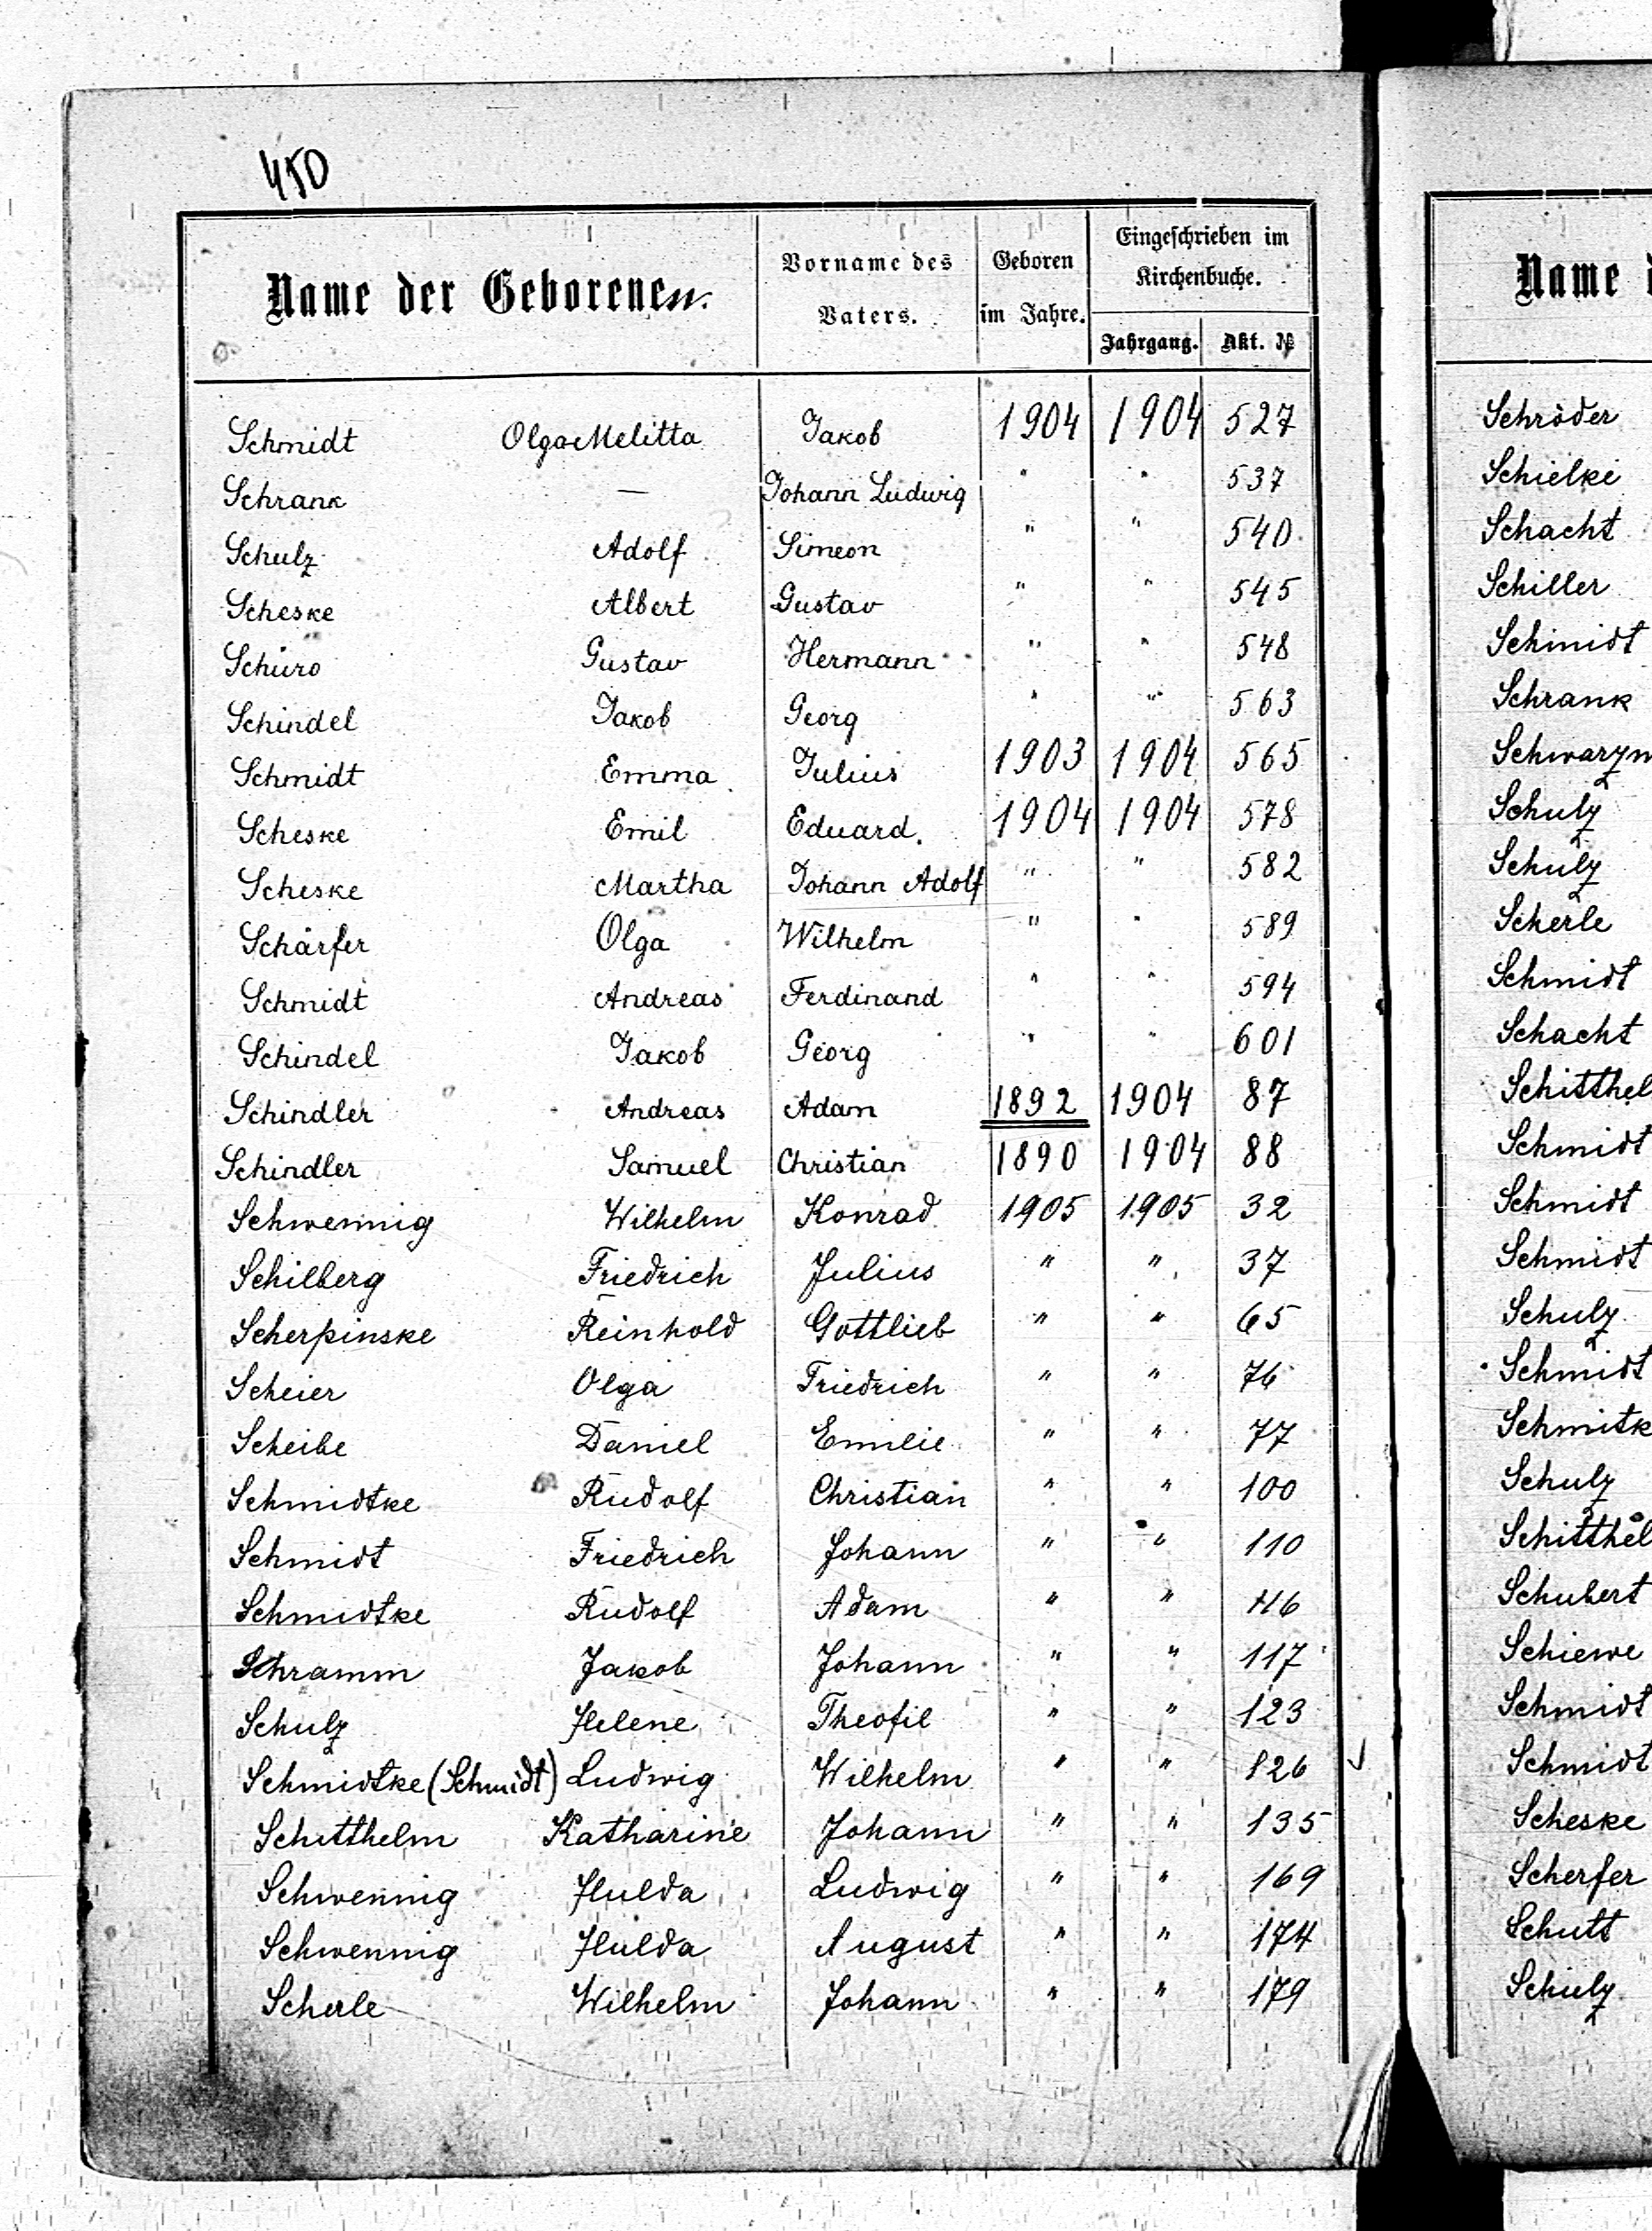 450
Name der Geborenen.
Vorname des Vaters.
Geboren im Jahre.
Eingeschrieben im Kirchenbuche.
Jahrgang. Akt. №
Schmidt Olga Melitta Jakob 1904 1904 527
Schrank — Johann Ludwig " " 537
Schulz Adolf Simeon " " 540
Scheske Albert Gustav " " 545
Schüro Gustav Hermann " " 548
Schindel Jakob Georg " " 563
Schmidt Emma Julius 1903 1904 565
Scheske Emil Eduard. 1904 1904 578
Scheske Martha Johann Adolf " " 582
Schärfer Olga Wilhelm " " 589
Schmidt Andreas Ferdinand " " 594
Schindel Jakob Georg " " 601
Schindler Andreas Adam 1892 1904 87
Schindler Samuel Christian 1890 1904 88
Schwennig Wilhelm Konrad 1905 1905 32
Schilberg Friedrich Julius " " 37
Scherpinske Reinhold Gottlieb " " 65
Scheier Olga Friedrich " " 76
Scheibe Daniel Emilie " " 77
Schmidtke Rudolf Christian " " 100
Schmidt Friedrich Johann " " 110
Schmidtke Rudolf Adam " " 116
Schramm Jakob Johann " " 117
Schulz Helene Theofil " " 123
Schmidtke (Schmidt) Ludwig Wilhelm " " 126
Schitthelm Katharine Johann " " 135
Schwennig Hulda Ludwig " " 169
Schwennig Hulda August " " 174
Scherle Wilhelm Johann " " 179
Name
Schröder
Schielke
Schacht
Schiller
Schmidt
Schrank
Schwarzm
Schulz
Schulz
Scherle
Schmidt
Schacht
Schitthel
Schmidt
Schmidt
Schmidt
Schulz
Schmidt
Schmitk
Schulz
Schitthel
Schubert
Schiewe
Schmidt
Schmidt
Scheske
Scherfer
Schutt
Schulz